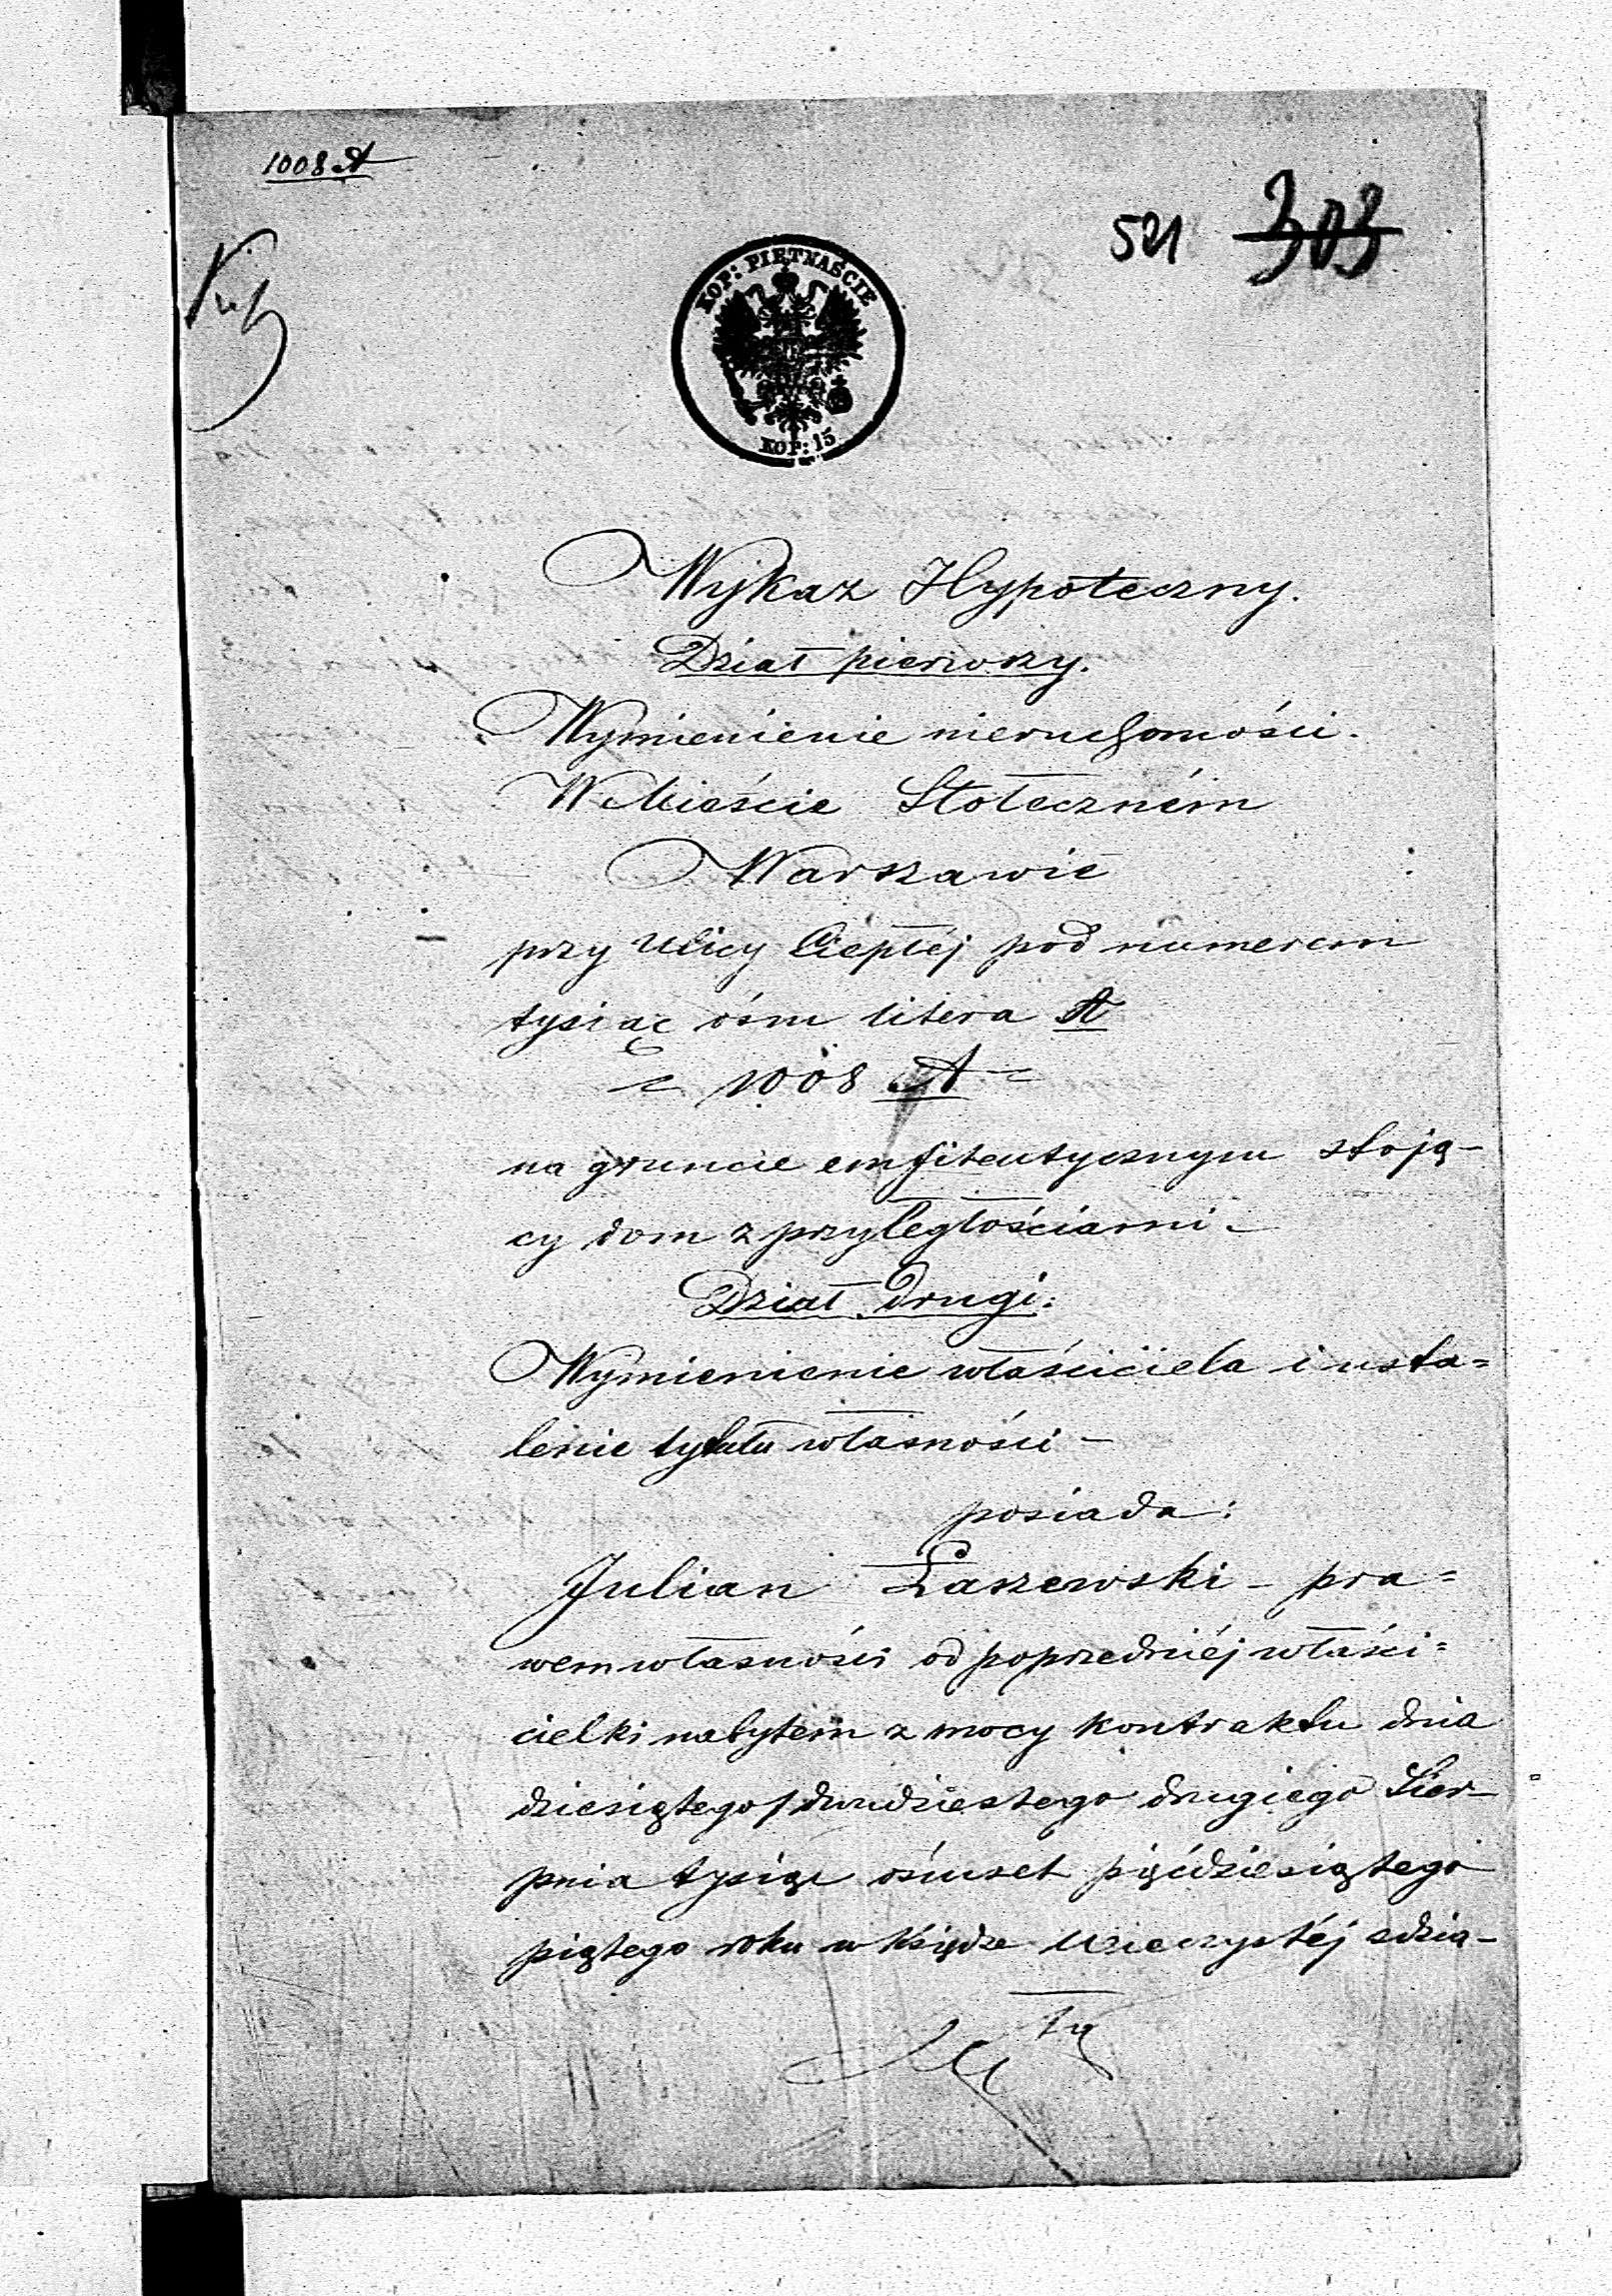 1008 A
521 303
KOP: PIĘTNAŚCIE
KOP: 15
Wykaz Hypoteczny.
Dział pierwszy.
Wymienienie nieruchomości.
W Mieście Stołeczném
Warszawie
przy Ulicy Ciepłéj pod numerem
tysiąc ósm litera A
1008 A
na gruncie emfiteutycznym stoją-
cy dom z przyległościami -
Dział drugi:
Wymienienie właściciela i usta=
lenie tytułu własności -
posiada:
Julian Łaszewski - pra=
wem własności od poprzedniéj właści=
cielki nabytem z mocy kontraktu dnia
dziesiątego/dwudziestego drugiego Sier-
pnia tysiąc ośmset pięćdziesiątego
piątego roku w Księdze Wieczystéj zdzia-